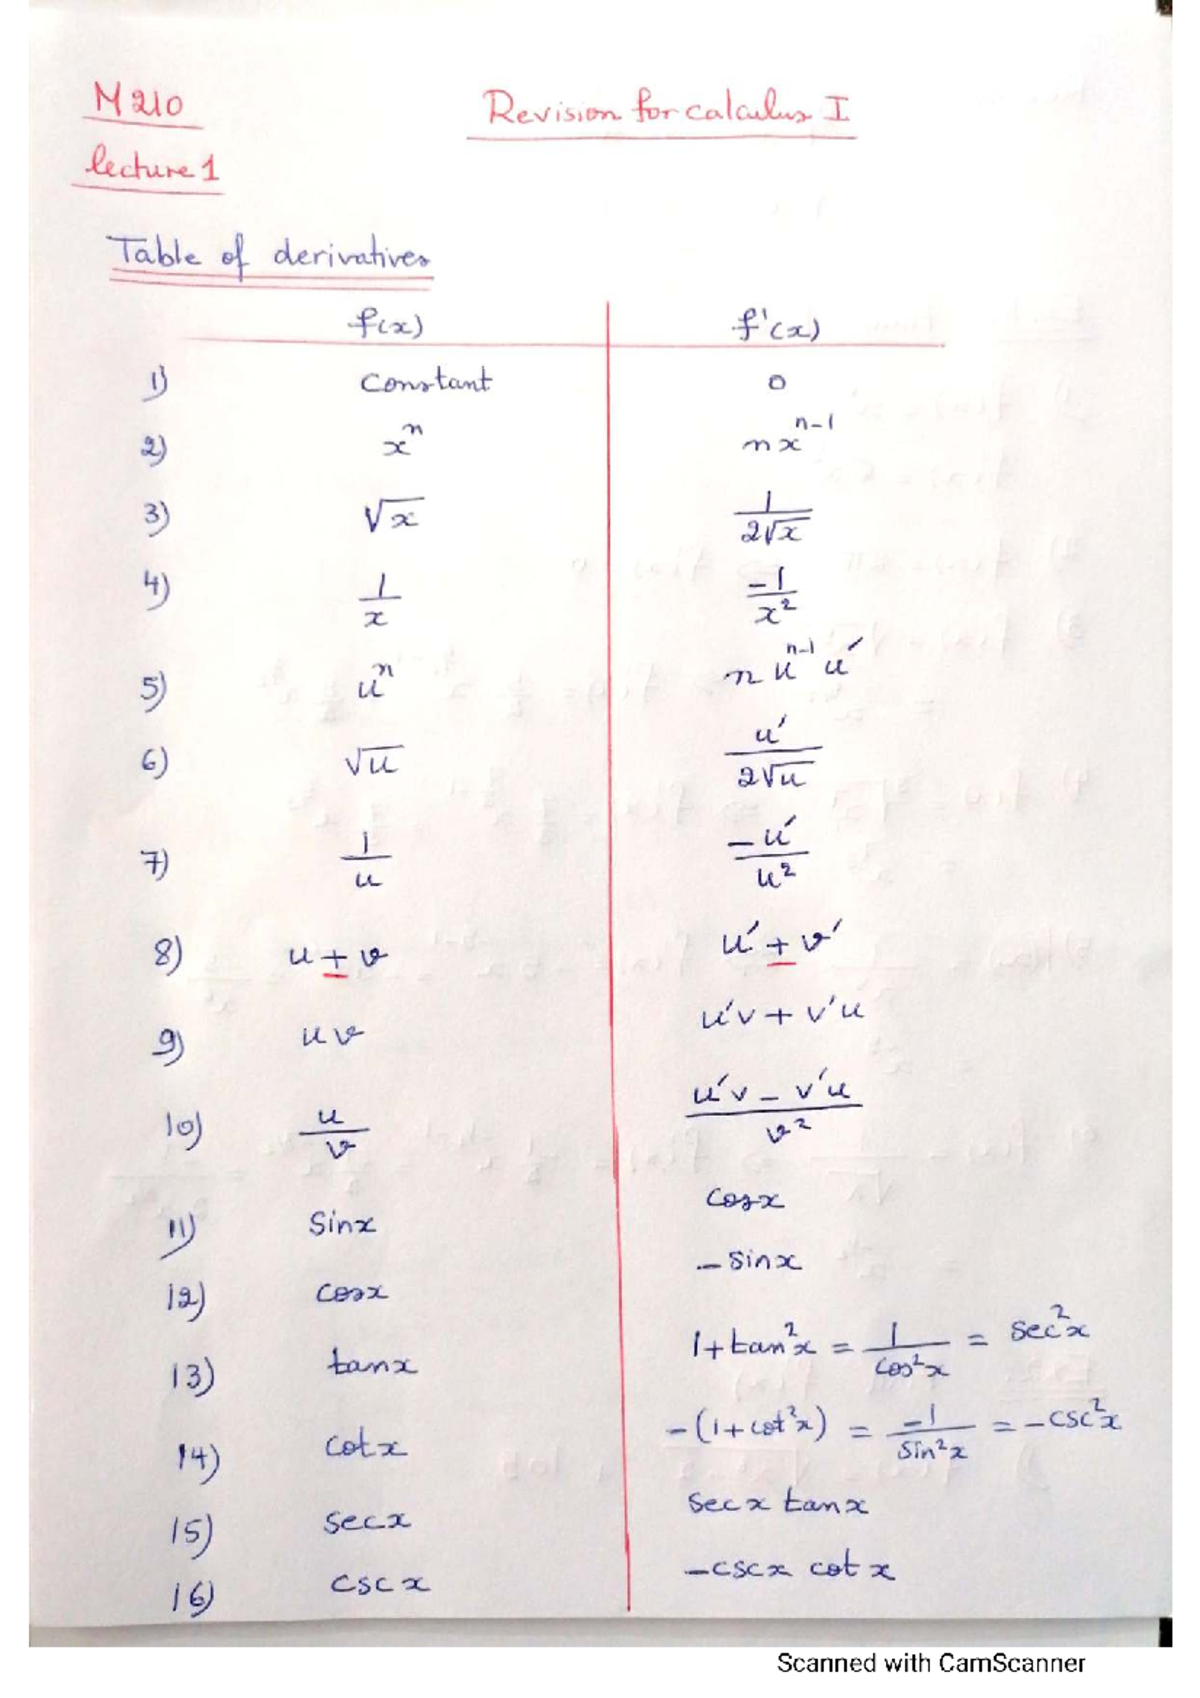 M210
Revision for calculus I
lecture 1
Table of derivatives
f(x) f'(x)
1) constant 0
2) xⁿ nxⁿ⁻¹
3) √x 1/(2√x)
4) 1/x -1/x²
5) uⁿ n uⁿ⁻¹ u'
6) √u u'/(2√u)
7) 1/u -u'/u²
8) u ± v u' ± v'
9) uv u'v + v'u
10) u/v (u'v - v'u)/v²
11) sinx cosx
12) cosx -sinx
13) tanx 1+tan²x = 1/cos²x = sec²x
14) cotx -(1+cot²x) = -1/sin²x = -csc²x
15) secx secx tanx
16) cscx -cscx cotx
Scanned with CamScanner